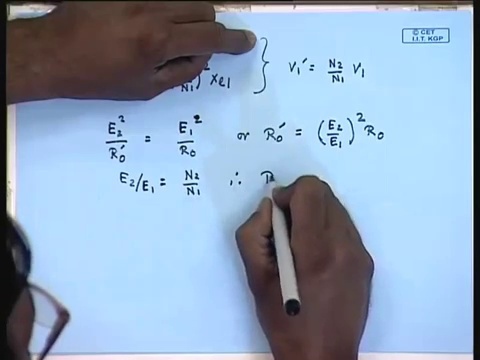 © CET
I.I.T. KGP
N1)² Xe1 } V1' = N2/N1 V1
E2²/R0' = E1²/R0 or R0' = (E2/E1)² R0
E2/E1 = N2/N1 ∴ R